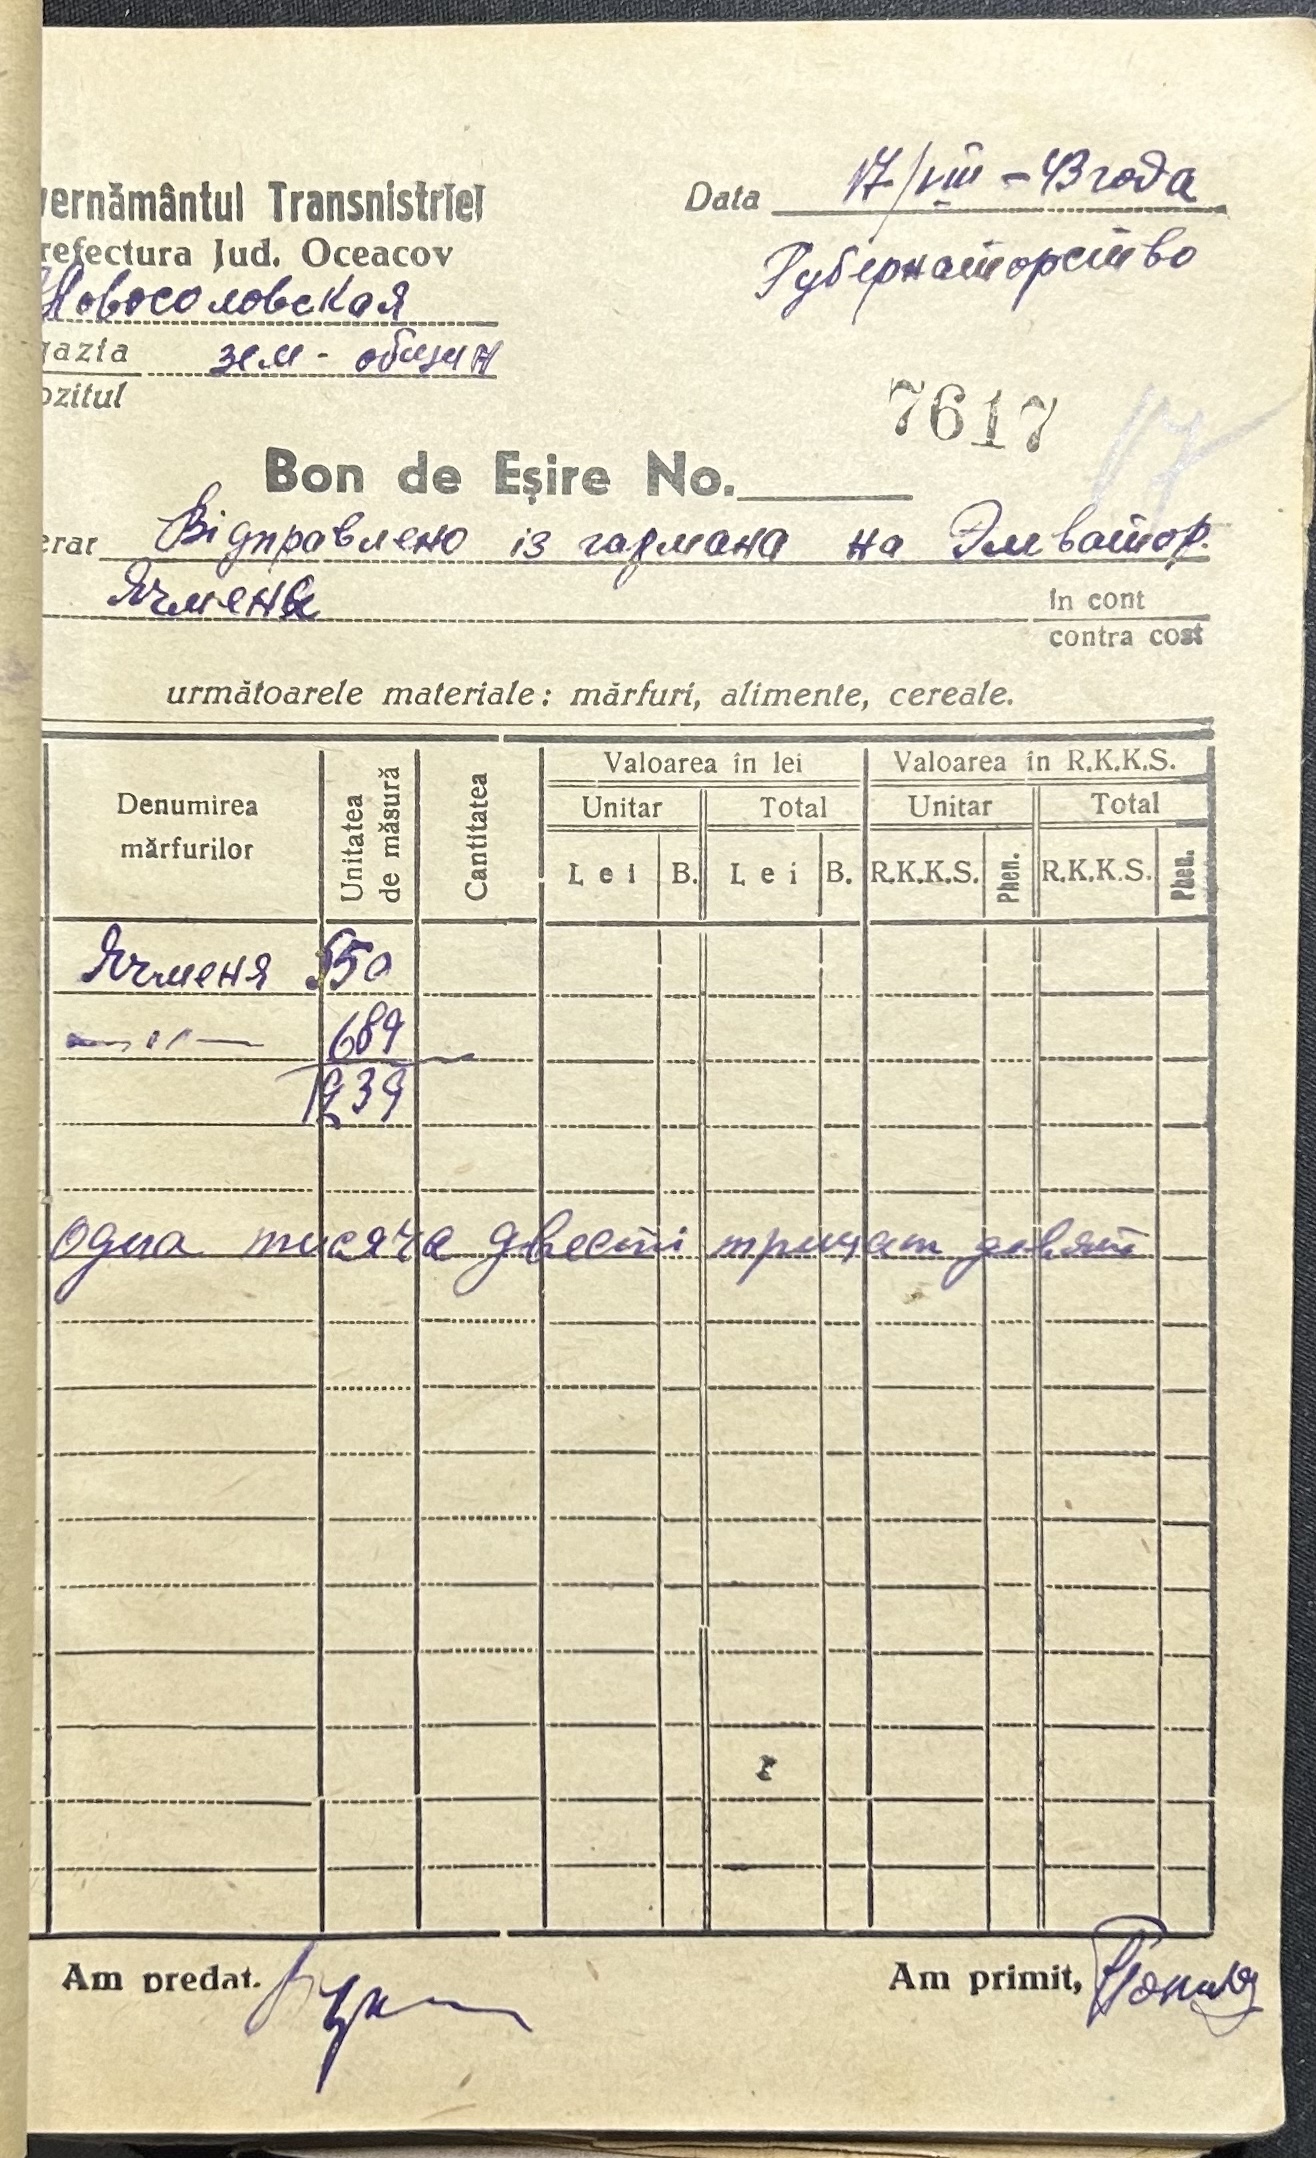 vernământul Transnistriei
Data 17/VIII – 43 года
refectura Jud. Oceacov
Губернаторство
Новосоловская
gazia зем - общин
ozitul
7617
17
Bon de Eșire No.
erat Відправлено із гармана на Элватор.
Ячмень
în cont
contra cost
următoarele materiale: mărfuri, alimente, cereale.
Denumirea mărfurilor
Unitatea de măsură
Cantitatea
Valoarea în lei
Valoarea în R.K.K.S.
Unitar
Total
Unitar
Total
Lei B. Lei B. R.K.K.S. Phen. R.K.K.S. Phen.
Ячменя 550
—〃— 689
1239
одна тисяча двесті трицат девят
Am predat.
Am primit,